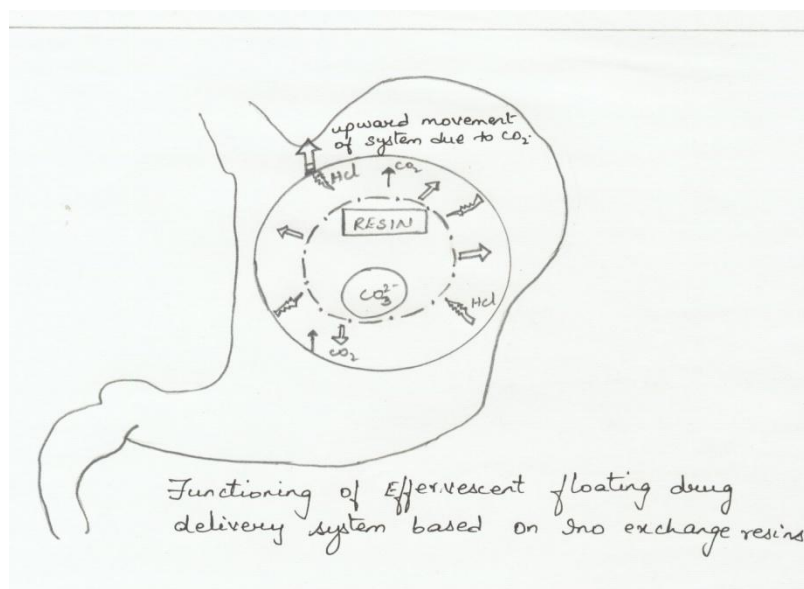 upward movement
of system due to CO₂.
HCl
CO₂
RESIN
CO₃²⁻
HCl
CO₂
Functioning of Effervescent floating drug
delivery system based on Ino exchange resins